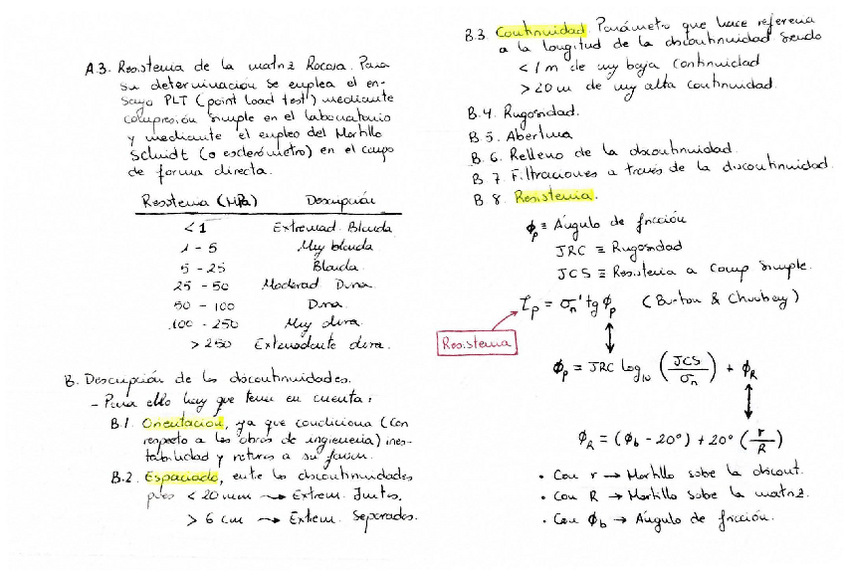 A.3. Resistencia de la matriz Rocosa. Para
su determinación se emplea el en-
sayo PLT (point load test) mediante
compresión simple en el laboratorio
y mediante el empleo del Martillo
Schmidt (o esclerómetro) en el campo
de forma directa.
Resistencia (MPa) Descripción
<1 Extremad. Blanda
1 - 5 Muy blanda
5 - 25 Blanda
25 - 50 Moderad. Dura
50 - 100 Dura
100 - 250 Muy dura
> 250 Extremadamente dura.
B. Descripción de las discontinuidades.
- Para ello hay que tener en cuenta:
B.1 Orientación, ya que condiciona (con
respecto a las obras de ingeniería) ines-
tabilidad y roturas a su favor.
B.2. Espaciado, entre las discontinuidades
pues < 20 mm → Extrem. Juntos.
> 6 cm → Extrem. Separados.
B.3 Continuidad. Parámetro que hace referencia
a la longitud de la discontinuidad siendo
< 1 m de muy baja continuidad
> 20 m de muy alta continuidad.
B.4. Rugosidad.
B.5. Abertura
B.6. Relleno de la discontinuidad.
B.7. Filtraciones a través de la discontinuidad.
B.8. Resistencia.
ϕp ≡ Ángulo de fricción
JRC ≡ Rugosidad
JCS ≡ Resistencia a comp simple.
τp = σn' tg ϕp (Barton & Choubey)
Resistencia
ϕp = JRC log10 (JCS/σn) + ϕR
ϕR = (ϕb - 20°) + 20° (r/R)
• Con r → Martillo sobre la discont.
• Con R → Martillo sobre la matriz.
• Con ϕb → Ángulo de fricción.